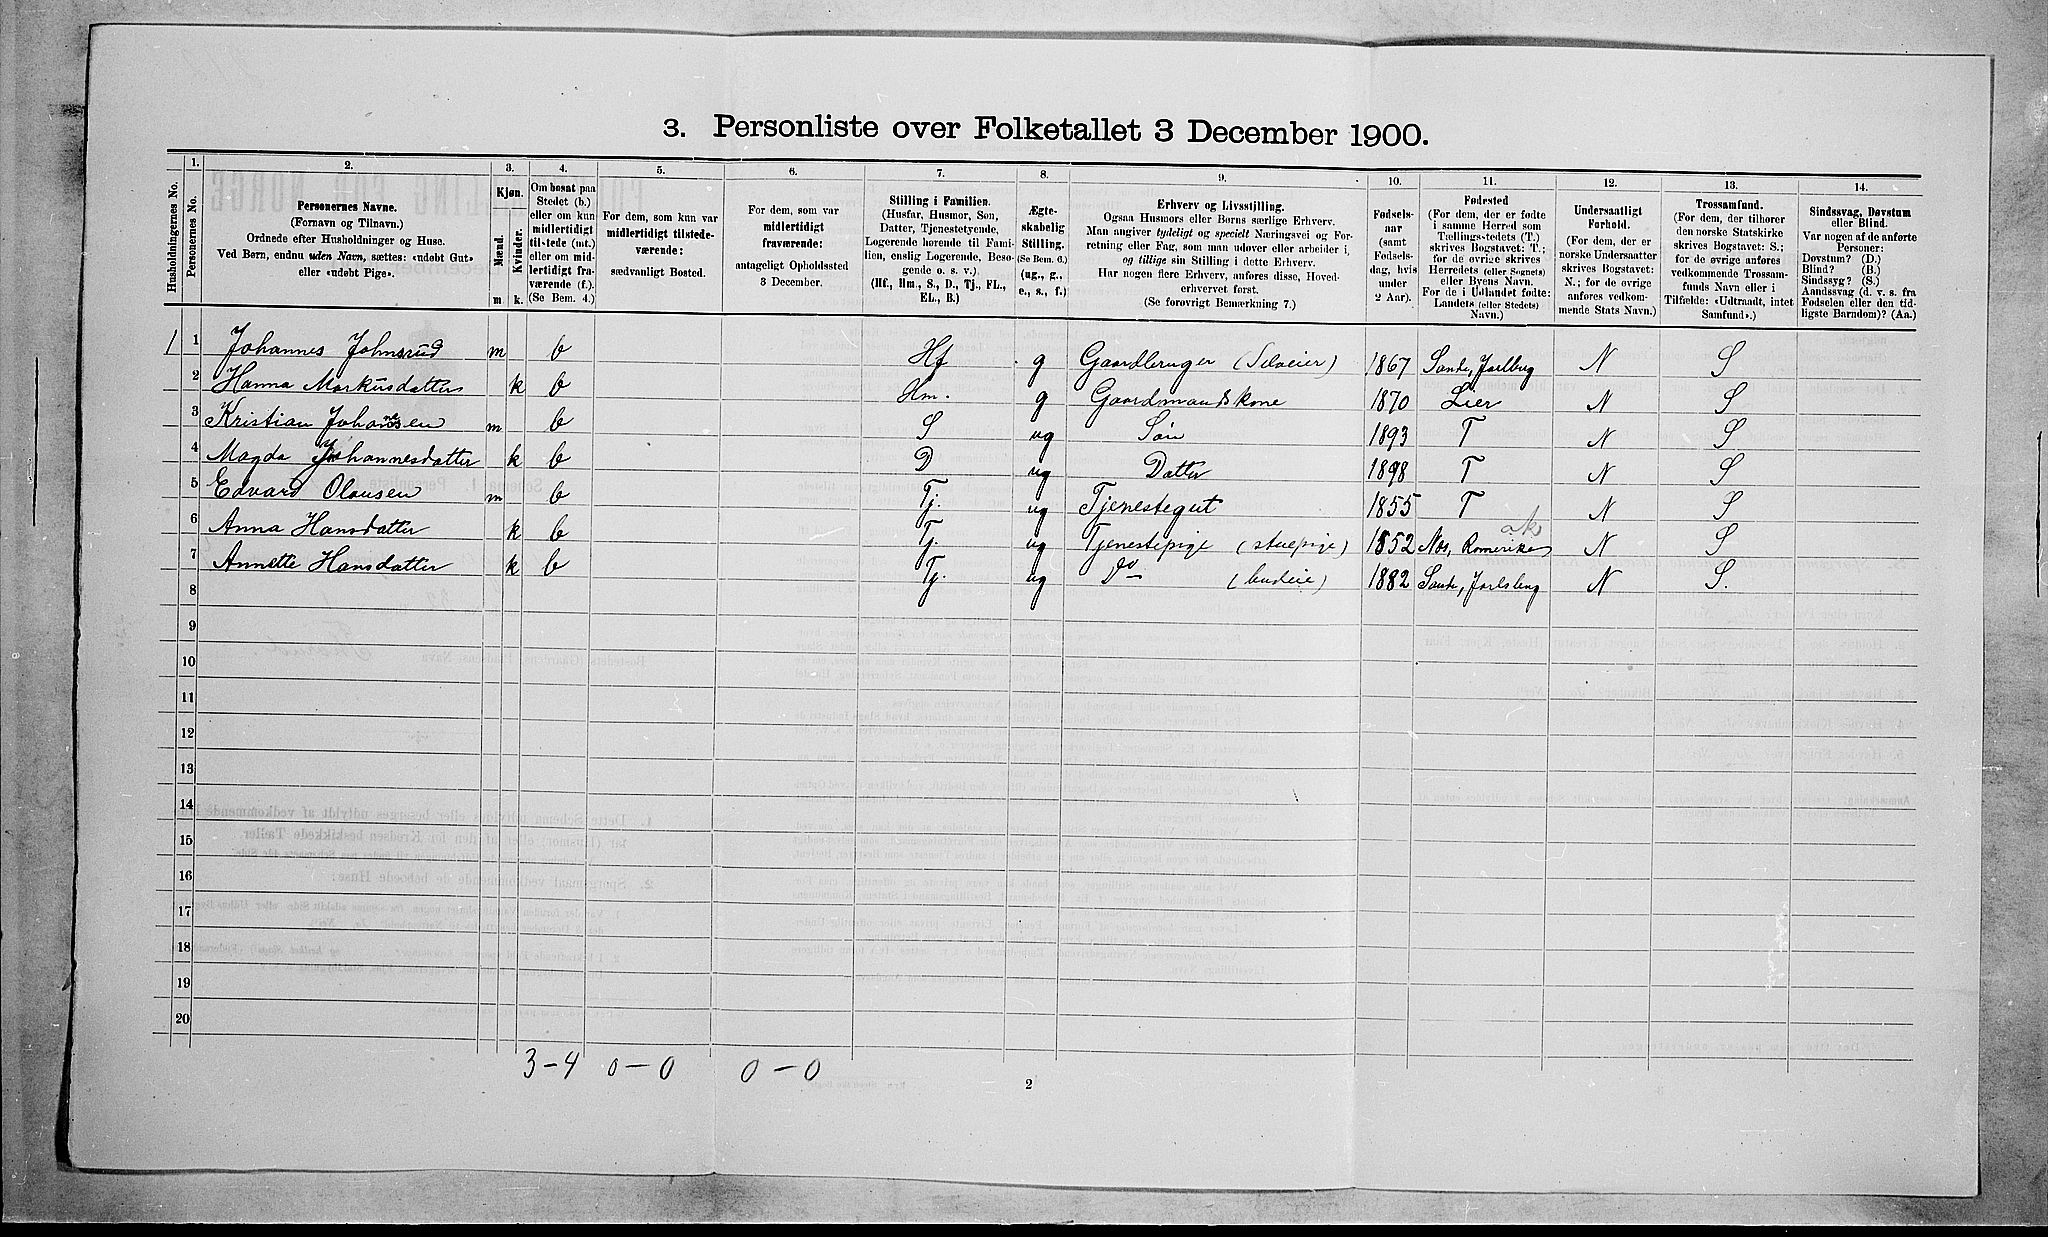 3. Personliste over Folketallet 3 December 1900.
Husholdningernes No.
1.
Personernes No.
2.
Personernes Navne.
(Fornavn og Tilnavn.)
Ordnede efter Husholdninger og Huse.
Ved Børn, endnu uden Navn, sættes: «udøbt Gut»
eller «udøbt Pige».
3.
Kjøn.
Mænd.
Kvinder.
m
k.
4.
Om bosat paa
Stedet (b.)
eller om kun
midlertidigt
tilstede (mt.)
eller om mid-
lertidigt fra-
værende (f.).
(Se Bem. 4.)
5.
For dem, som kun var
midlertidigt tilstede-
værende:
sædvanligt Bosted.
6.
For dem, som var
midlertidigt
fraværende:
antageligt Opholdssted
3 December.
7.
Stilling i Familien.
(Husfar, Husmor, Søn,
Datter, Tjenestetyende,
Logerende hørende til Fami-
lien, enslig Logerende, Besø-
gende o. s. v.)
(Hf., Hm., S., D., Tj., FL.,
EL., B.)
8.
Ægte-
skabelig
Stilling.
(Se Bem. 6.)
(ug., g.,
e., s., f.)
9.
Erhverv og Livsstilling.
Ogsaa Husmors eller Børns særlige Erhverv.
Man angiver tydeligt og specielt Næringsvei og For-
retning eller Fag, som man udøver eller arbeider i,
og tillige sin Stilling i dette Erhverv.
Har nogen flere Erhverv, anføres disse, Hoved-
erhvervet først.
(Se forøvrigt Bemærkning 7.)
10.
Fødsels-
aar
(samt
Fødsels-
dag, hvis
under
2 Aar).
11.
Fødested
(For dem, der er fødte
i samme Herred som
Tællingsstedets (T.)
skrives Bogstavet: T.;
for de øvrige skrives
Herredets (eller Sognets)
eller Byens Navn.
For de i Udlandet fødte:
Landets (eller Stedets)
Navn.)
12.
Undersaatligt
Forhold.
(For dem, der er
norske Undersaatter
skrives Bogstavet:
N.; for de øvrige
anføres vedkom-
mende Stats Navn.)
13.
Trossamfund.
(For dem, der tilhører
den norske Statskirke
skrives Bogstavet: S.;
for de øvrige anføres
vedkommende Trossam-
funds Navn eller i
Tilfælde: «Udtraadt, intet
Samfund».)
14.
Sindssvag, Døvstum
eller Blind.
Var nogen af de anførte
Personer:
Døvstum? (D.)
Blind? (B.)
Sindssyg? (S.)
Aandssvag (d. v. s. fra
Fødselen eller den tid-
ligste Barndom)? (Aa.)
1 1 Johannes Johnsrud m b Hf g Gaardbruger (Selveier) 1867 Sande, Jarlberg N S
2 Hanna Markusdatter k b Hm. g Gaardmandskone 1870 Lier N S
3 Kristian Johannesen m b S ug Søn 1893 T N S
4 Magda Johannesdatter k b D ug Datter 1898 T N S
5 Edvard Olausen m b Tj. ug Tjenestegut 1855 T N S
6 Anna Hansdatter k b Tj. ug Tjenestepige (stuepige) 1852 Nes, Romerike ak N S
7 Annette Hansdatter k b Tj. ug Do (budeie) 1882 Sande, Jarlsberg N S.
8
9
10
11
12
13
14
15
16
17
18
19
20
3-4 0-0 0-0
2